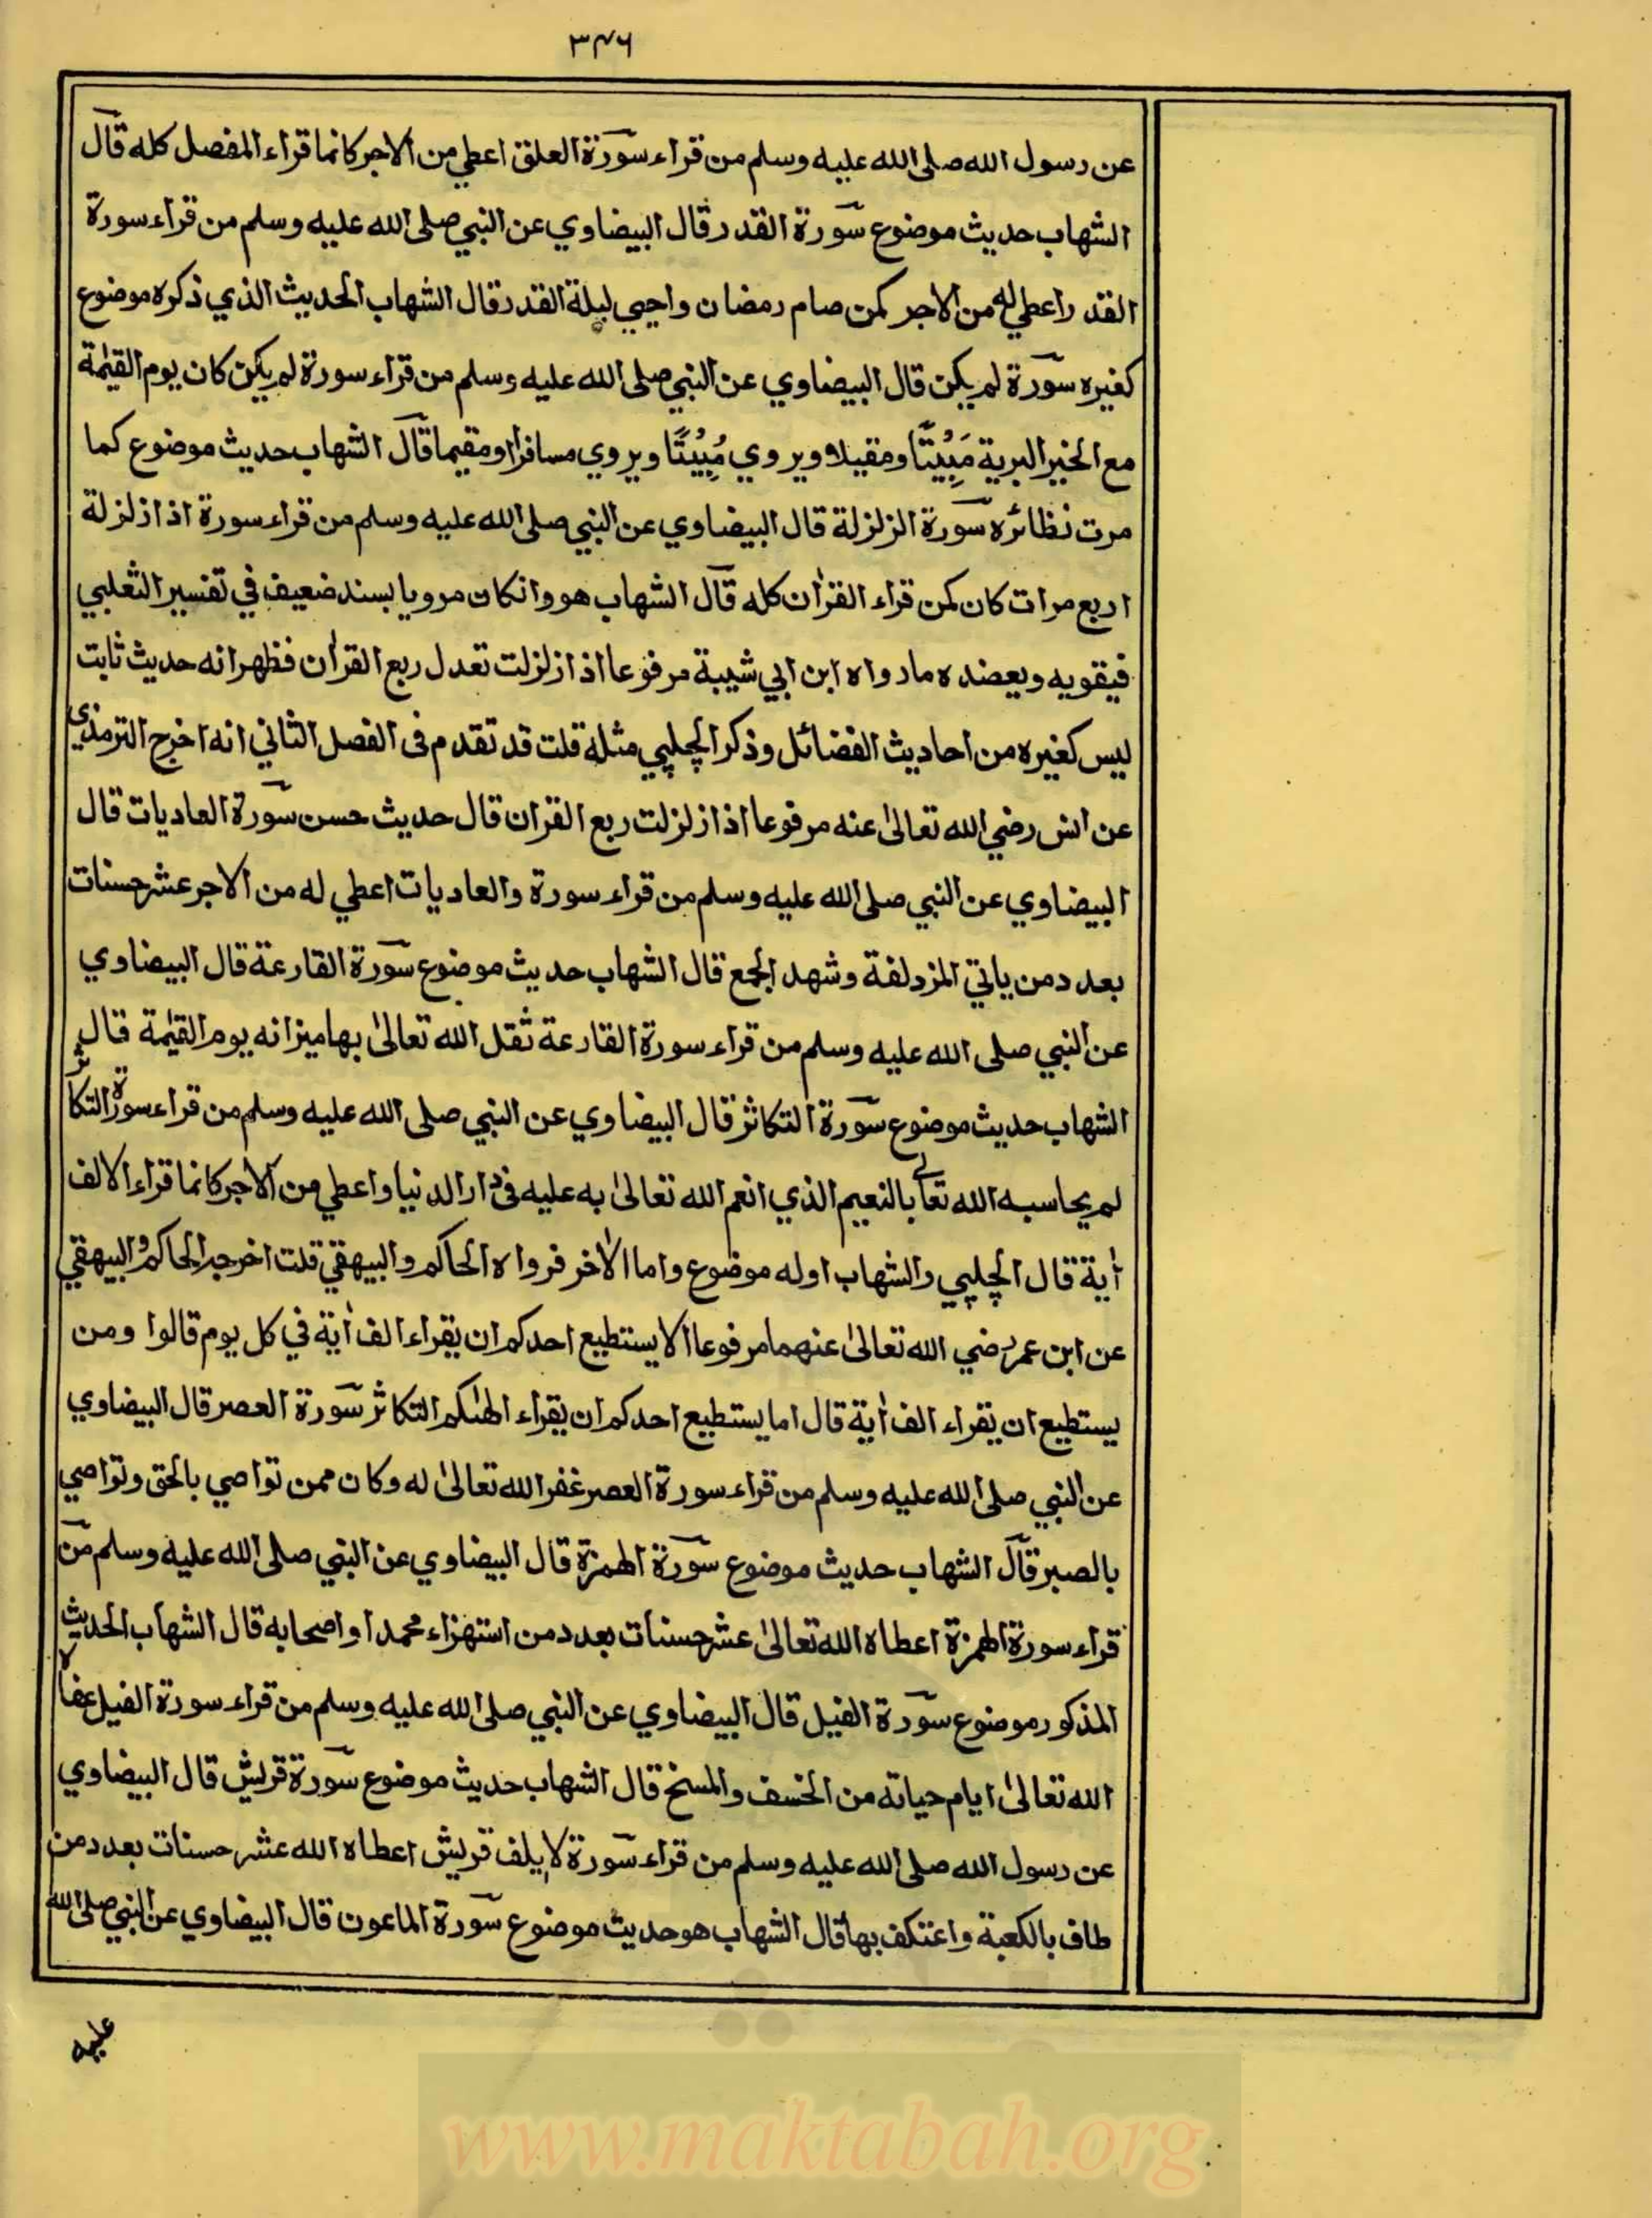 ٣٤٦
عن رسول الله صلى الله عليه وسلم من قراء سورة العلق اعطي من الاجر كانما قراء المفصل كله قال
الشهاب حديث موضوع سورة القدر قال البيضاوي عن النبي صلى الله عليه وسلم من قراء سورة
القدر اعطي له من الاجر كمن صام رمضان واحيي ليلة القدر قال الشهاب الحديث الذي ذكره موضوع
كغيره سورة لم يكن قال البيضاوي عن النبي صلى الله عليه وسلم من قراء سورة لم يكن كان يوم القيٰمة
مع الخير البرية مَبِيْتًا ومقيلا ويروي مُبِيْتًا ويروي مسافرا ومقيما قال الشهاب حديث موضوع كما
مرت نظائره سورة الزلزلة قال البيضاوي عن النبي صلى الله عليه وسلم من قراء سورة اذا زلزلة
اربع مرات كان كمن قراء القرٰان كله قال الشهاب هو وانكان مرويا بسند ضعيف في تفسير الثعلبي
فيقويه ويعضده ما رواه ابن ابي شيبة مرفوعا اذا زلزلت تعدل ربع القرٰان فظهر انه حديث ثابت
ليس كغيره من احاديث الفضائل وذكر الچلپي مثله قلت قد تقدم فى الفصل الثاني انه اخرج الترمذي
عن انس رضي الله تعالىٰ عنه مرفوعا اذا زلزلت ربع القران قال حديث حسن سورة العاديات قال
البيضاوي عن النبي صلى الله عليه وسلم من قراء سورة والعاديات اعطي له من الاجر عشر حسنات
بعدد من ياتي المزدلفة وشهد الجمع قال الشهاب حديث موضوع سورة القارعة قال البيضاوي
عن النبي صلى الله عليه وسلم من قراء سورة القارعة ثقل الله تعالىٰ بها ميزانه يوم القيٰمة قال
الشهاب حديث موضوع سورة التكاثر قال البيضاوي عن النبي صلى الله عليه وسلم من قراء سورة التكاثر
لم يحاسبه الله تعالے بالنعيم الذي انعم الله تعالىٰ به عليه فى دار الدنيا واعطي من الاجر كانما قراء الالف
أية قال الچلپي والشهاب اوله موضوع واما الأخر فرواه الحاكم والبيهقي قلت اخرجه الحاكم والبيهقي
عن ابن عمر رضي الله تعالىٰ عنهما مرفوعا الا يستطيع احدكم ان يقراء الف أية في كل يوم قالوا ومن
يستطيع ان يقراء الف أية قال اما يستطيع احدكم ان يقراء الهٰىكم التكاثر سورة العصر قال البيضاوي
عن النبي صلى الله عليه وسلم من قراء سورة العصر غفر الله تعالىٰ له وكان ممن تواصي بالحق وتواصي
بالصبر قال الشهاب حديث موضوع سورة الهمزة قال البيضاوي عن النبي صلى الله عليه وسلم من
قراء سورة الهمزة اعطاه الله تعالىٰ عشر حسنات بعدد من استهزاء محمدا واصحابه قال الشهاب الحديث
المذكور موضوع سورة الفيل قال البيضاوي عن النبي صلى الله عليه وسلم من قراء سورة الفيل عفا
الله تعالىٰ ايام حياته من الخسف والمسخ قال الشهاب حديث موضوع سورة قريش قال البيضاوي
عن رسول الله صلى الله عليه وسلم من قراء سورة لإيلف قريش اعطاه الله عشر حسنات بعدد من
طاف بالكعبة واعتكف بها قال الشهاب هو حديث موضوع سورة الماعون قال البيضاوي عن النبي صلى الله
عليه
www.maktabah.org